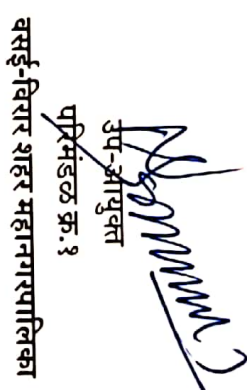 उप-आयुक्त
परिमंडळ क्र.१
वसई-विरार शहर महानगरपालिका